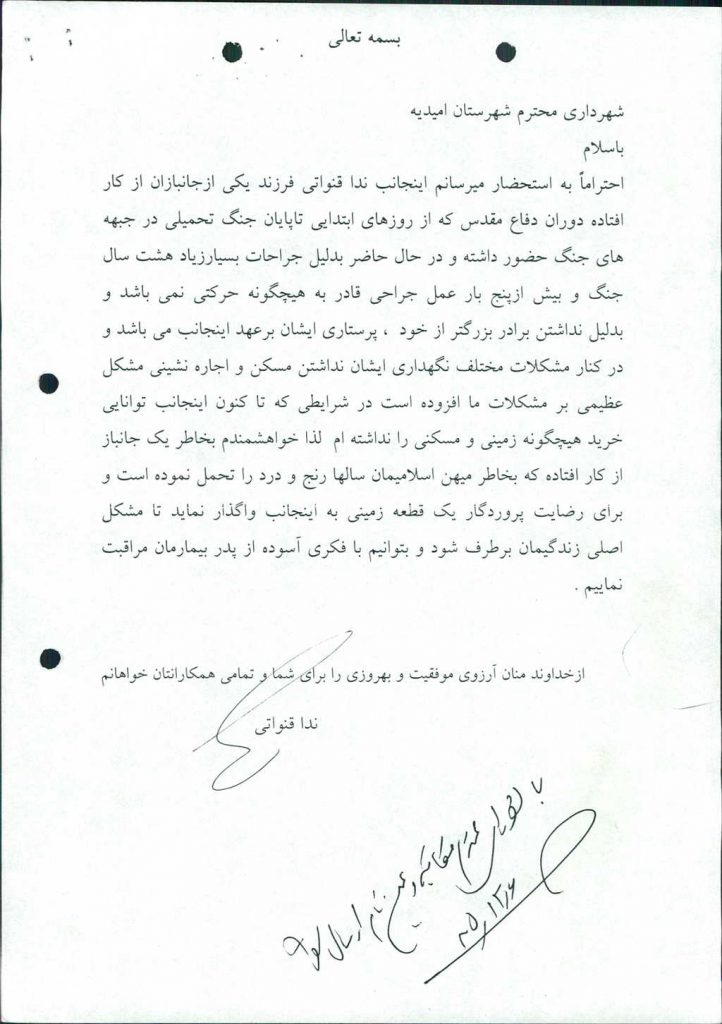 بسمه تعالی
شهرداری محترم شهرستان امیدیه
باسلام
احتراماً به استحضار میرسانم اینجانب ندا قنواتی فرزند یکی ازجانبازان از کار
افتاده دوران دفاع مقدس که از روزهای ابتدایی تاپایان جنگ تحمیلی در جبهه
های جنگ حضور داشته و در حال حاضر بدلیل جراحات بسیارزیاد هشت سال
جنگ و بیش ازپنج بار عمل جراحی قادر به هیچگونه حرکتی نمی باشد و
بدلیل نداشتن برادر بزرگتر از خود ، پرستاری ایشان برعهد اینجانب می باشد و
در کنار مشکلات مختلف نگهداری ایشان نداشتن مسکن و اجاره نشینی مشکل
عظیمی بر مشکلات ما افزوده است در شرایطی که تا کنون اینجانب توانایی
خرید هیچگونه زمینی و مسکنی را نداشته ام لذا خواهشمندم بخاطر یک جانباز
از کار افتاده که بخاطر میهن اسلامیمان سالها رنج و درد را تحمل نموده است و
برای رضایت پروردگار یک قطعه زمینی به اینجانب واگذار نماید تا مشکل
اصلی زندگیمان برطرف شود و بتوانیم با فکری آسوده از پدر بیمارمان مراقبت
نماییم .
ازخداوند منان آرزوی موفقیت و بهروزی را برای شما و تمامی همکارانتان خواهانم
ندا قنواتی